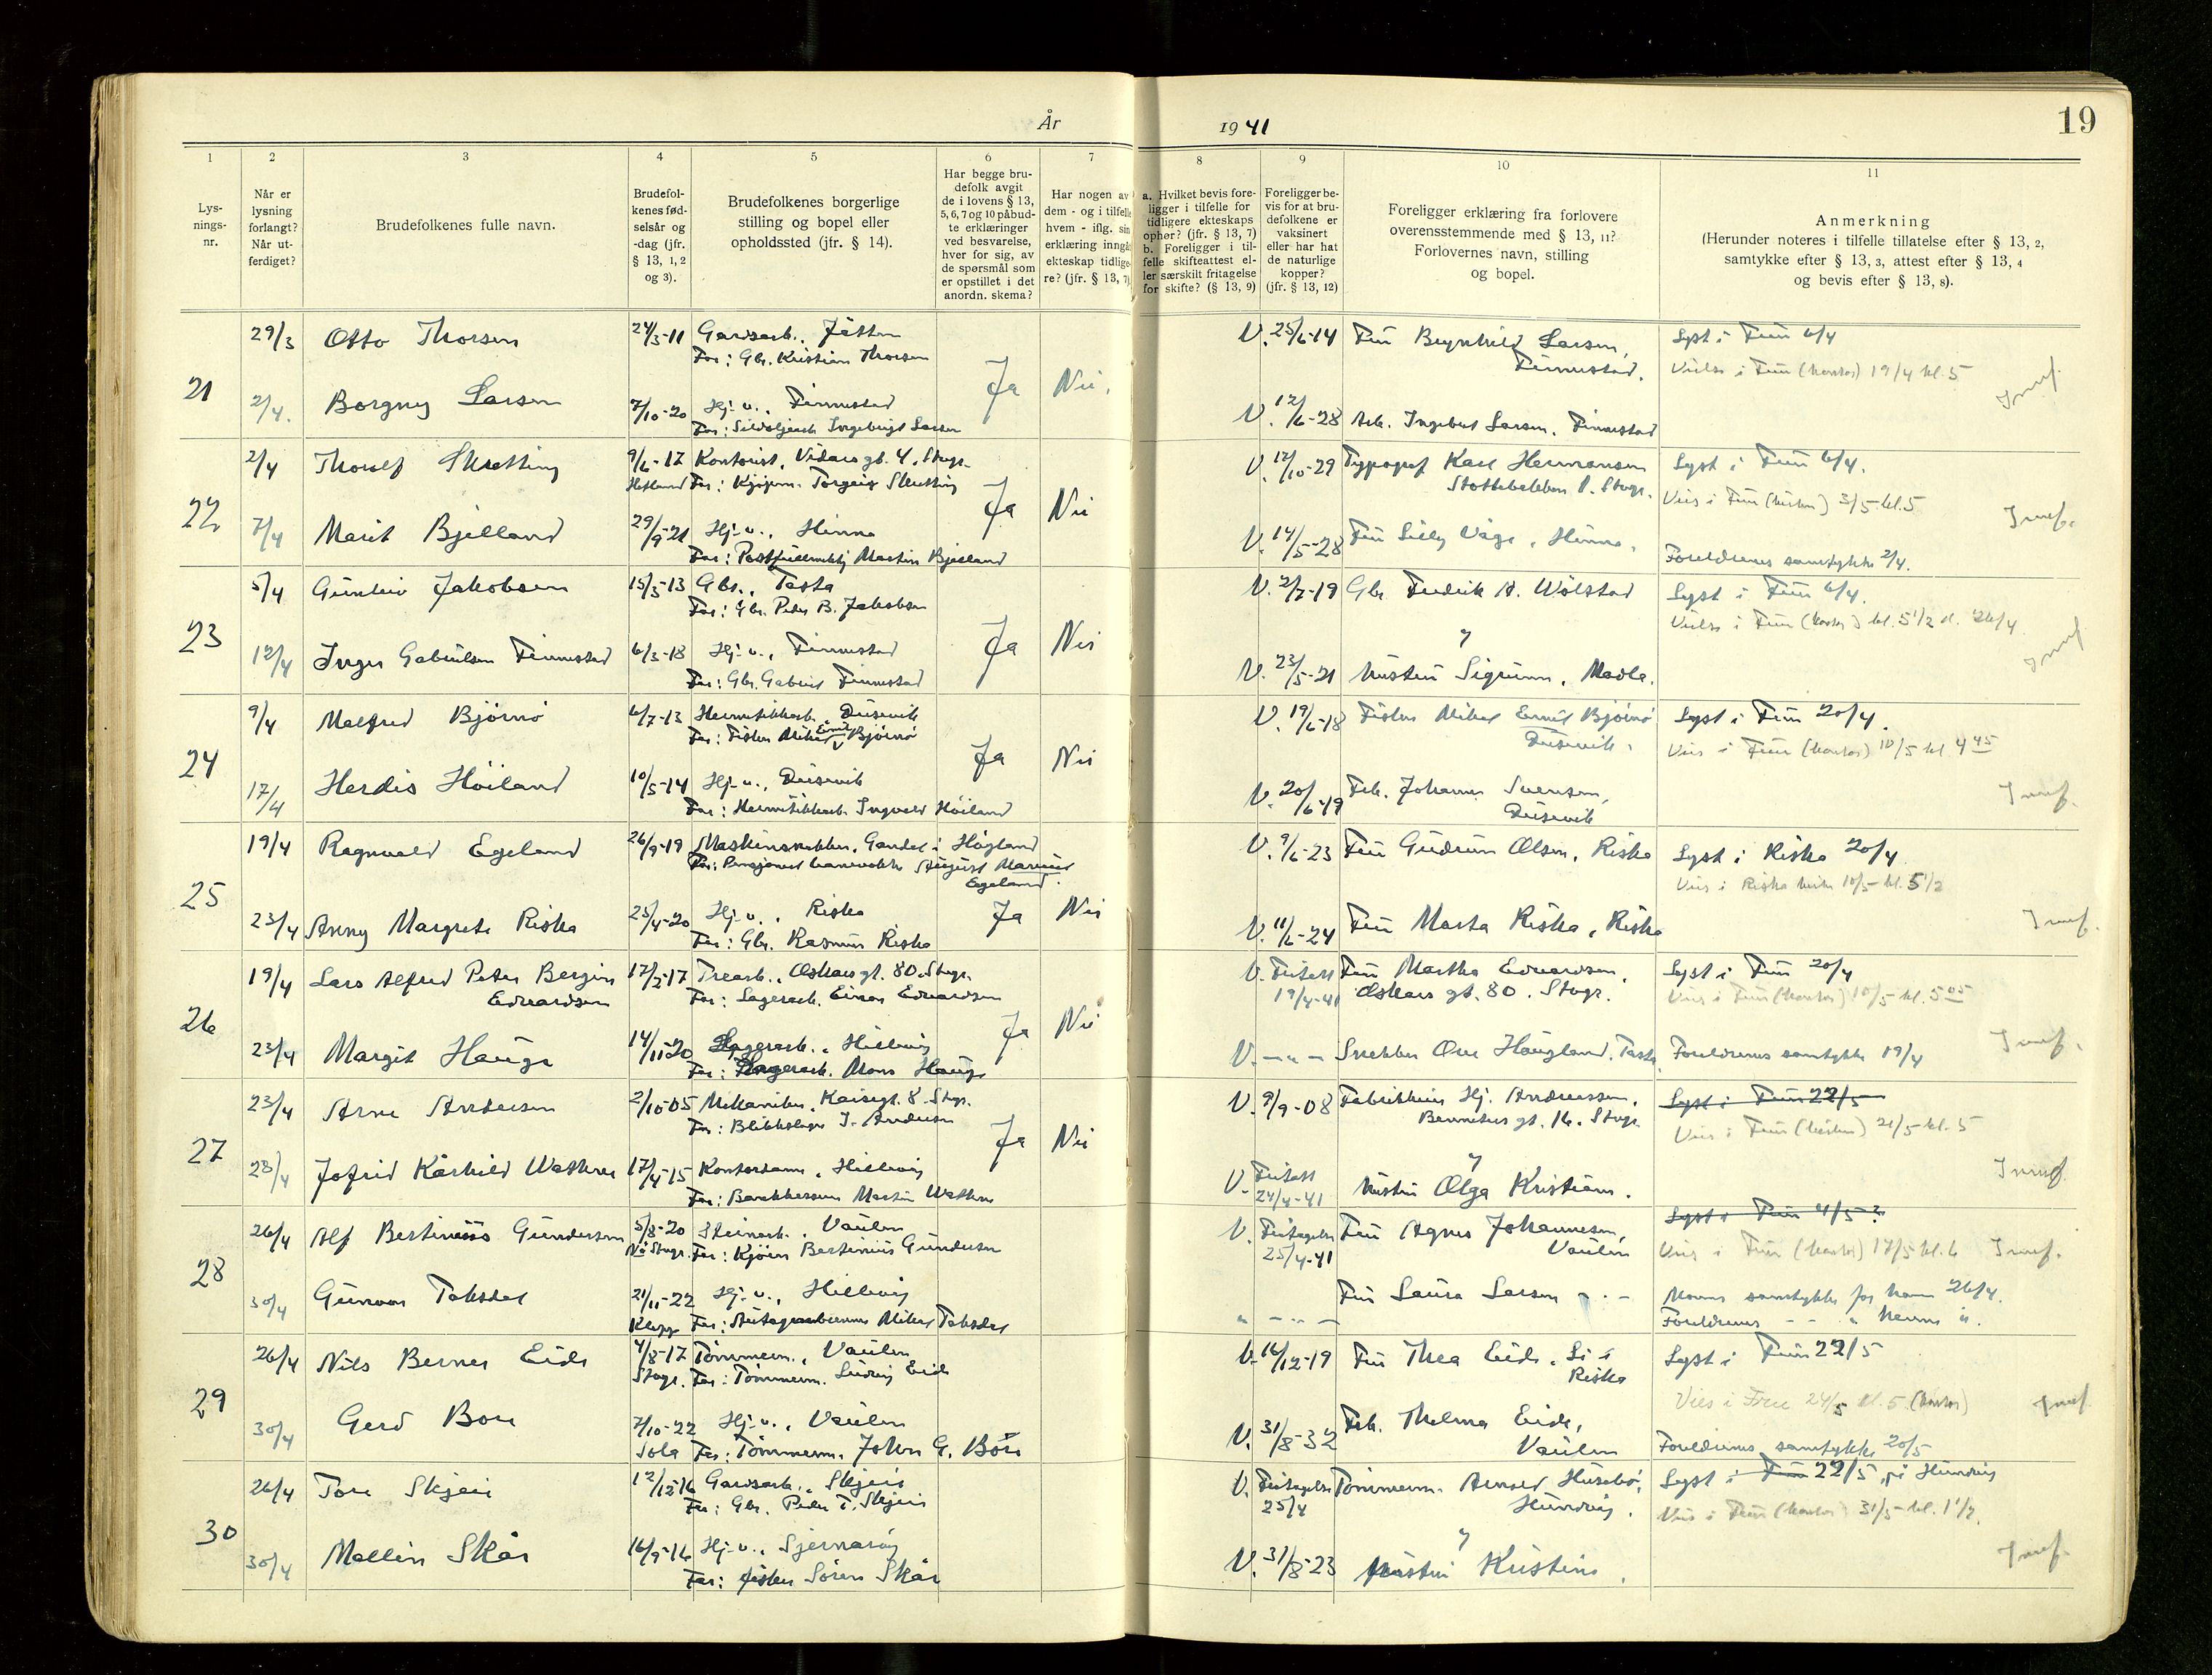 År 1941
19
1
2
3
4
5
6
7
8
9
10
11
Lys-
nings-
nr.
Når er
lysning
forlangt?
Når ut-
ferdiget?
Brudefolkenes fulle navn.
Brudefol-
kenes fød-
selsår og
-dag (jfr.
§ 13, 1, 2
og 3).
Brudefolkenes borgerlige
stilling og bopel eller
opholdssted (jfr. § 14).
Har begge bru-
defolk avgit
de i lovens § 13,
5, 6, 7 og 10 påbud-
te erklæringer
ved besvarelse,
hver for sig, av
de spørsmål som
er opstillet i det
anordn. skema?
Har nogen av
dem - og i tilfelle
hvem - iflg. sin
erklæring inngå
ekteskap tidlige-
re? (jfr. § 13, 7)
a. Hvilket bevis fore-
ligger i tilfelle for
tidligere ekteskaps
ophør? (jfr. § 13, 7)
b. Foreligger i til-
felle skifteattest el-
ler særskilt fritagelse
for skifte? (§ 13, 9)
Foreligger be-
vis for at bru-
defolkene er
vaksinert
eller har hat
de naturlige
kopper?
(jfr. § 13, 12)
Foreligger erklæring fra forlovere
overensstemmende med § 13, 11?
Forlovernes navn, stilling
og bopel.
Anmerkning
(Herunder noteres i tilfelle tillatelse efter § 13, 2,
samtykke efter § 13, 3, attest efter § 13, 4
og bevis efter § 13, 8).
21
29/3 Otto Thorsen 24/3-11 Gardsarb., Jåtten V. 25/6-14 Fru Brynhild Larsen, Lyst i Frue 6/4
Far: Gbr. Kristian Thorsen Finnestad. Vielse i Frue (kontor) 19/4 kl. 5
Ja Nei.
2/4. Borgny Larsen 7/10-20 Hj.-v., Finnestad V. 12/6-28 Arb. Ingebret Larsen, Finnestad
Far: Sildoljearb Ingebrigt Larsen
22
2/4 Thorolf Skretting 9/6-17 Kontorist, Vidars gt. 4, Stvgr. V. 12/10-29 Typograf Karl Hermansen Lyst i Frue 6/4.
Hetland Far: Kjøpm. Torgeir Skretting Støttebakken 1. Stvgr. Vies i Frue (kirken) 3/5 kl. 5
Ja Nei
7/4 Marit Bjelland 29/9-21 Hj.-v., Hinna V. 14/5-28 Fru Lilly Våge, Hinna.
Far: Postfullmektig Martin Bjelland Foreldrenes samtykke 2/4.
23
5/4 Gunleiv Jakobsen 15/3-13 Gbr., Tasta V. 2/7-19 Gbr. Fredrik A. Wølstad Lyst i Frue 6/4.
Far: Gbr. Peder B. Jakobsen Vielse i Frue (kontor) kl. 5 1/2 d. 26/4
Ja Nei
12/4 Inger Gabrielsen Finnestad 6/3-18 Hj.-v., Finnestad V. 23/5-21 hustru Sigrunn, Madla.
Far: Gbr. Gabriel Finnestad
24
9/4 Malfred Bjørnø 6/7-13 Hermetikkarb., Dusevik V. 19/6-18 Fisker Mikal Emil Bjørnø Lyst i Frue 20/4.
Far: Fisker Mikal Emil Bjørnø Dusevik. Vies i Frue (kontor) 10/5 kl 4 45
Ja Nei
17/4 Herdis Høiland 10/5-14 Hj.-v., Dusevik V. 20/6-19 Frk. Johanne Svensen,
Far: Hermetikkarb. Ingvald Høiland Dusevik
25
19/4 Ragnvald Egeland 26/9-19 Maskinsnekker, Gandal i Høgland V. 9/6-23 Fru Gudrun Olsen, Riska Lyst i Riska 20/4
Far: Pensjonert banevokter August Marius Vies i Riska kirke 10/5 kl. 5 1/2
Egeland.
Ja Nei
23/4 Anny Margrete Riska 25/4-20 Hj.-v., Riska V. 11/6-24 Fru Marta Riska, Riska
Far: Gbr. Rasmus Riska
26
19/4 Lars Alfred Peter Bergin 17/2-17 Trearb., Oskars gt. 80. Stvgr. V. Friatt. Fru Martha Edvardsen, Lyst i Frue 20/4
Edvardsen Far: Lagerarb. Einar Edvardsen 19/4-41 Oskars gt. 80. Stvgr. Vies i Frue (kontor) 10/5 kl. 5 05
Ja Nei
23/4 Margit Hauge 14/11-20 Lagerarb., Hillevåg V. -"- Snekker Ove Haugland, Tasta. Foreldrenes samtykke 19/4
Far: Lagerarb. Mons Hauge
27
23/4 Arne Andersen 2/10-05 Mekaniker, Kaisegt. 8. Stvgr. V. 9/9-08 Hj. Andreassen, Lyst i Frue 22/5
Far: Blikkslager J. Andersen Bernekers gt. 16. Stvgr. Vies i Frue (kirken) 21/5 kl. 5
Ja Nei
28/4 Jofrid Kårhild Wathne 17/4-15 Kontordame, Hillevåg V. Friatt. og
Far: Martin Wathne 24/4-41 hustru Olga Kristiane.
28
26/4 Alf Bertinius Gundersen 5/8-20 Steinarb., Vaulen V. Fritagelse Fru Agnes Johannesen, Lyst i Frue 4/5?
Stvgr. Far: Kjøren Bertinius Gundersen 25/4-41 Vaulen Vies i Frue (kontor) 17/5 kl. 6
30/4 Gunvor Taksdal 21/11-22 Hj.-v., Hillevåg Fru Laura Larsen - " - Morens samtykke for ham 26/4.
Klepp Far: Mikal Taksdal " - " - Foreldrenes - - " henne ".
29
26/4 Nils Berner Eide 4/8-17 Tømmerm., Vaulen V. 16/12-19 Fru Thea Eide, Li i Lyst i Frue 22/5
Stvgr. Far: Tømmerm. Ludvig Eide Riska
Vies i Frue 24/5 kl. 5 (kontor)
30/4 Gerd Bore 7/10-22 Hj.-v., Vaulen V. 31/8-32 Frk. Thelma Eide,
Sola Far: Tømmerm. John G. Bore Vaulen Foreldrenes samtykke 20/5
30
26/4 Tore Skjeie 12/12-16 Gardsarb., Skjeie V. Fritagelse Tømmerm. Arnold Husebø, Lyst i Frue 22/5 på Hundvåg
Far: Gbr. Peder T. Skjeie 25/4 Hundvåg. Vies i Frue (kontor) 31/5 kl. 1 1/2.
30/4 Mallin Skår 16/9-16 Hj.-v., Sjernarøy V. 31/8-23 hustru Kristine.
Far: fisker Søren Skår